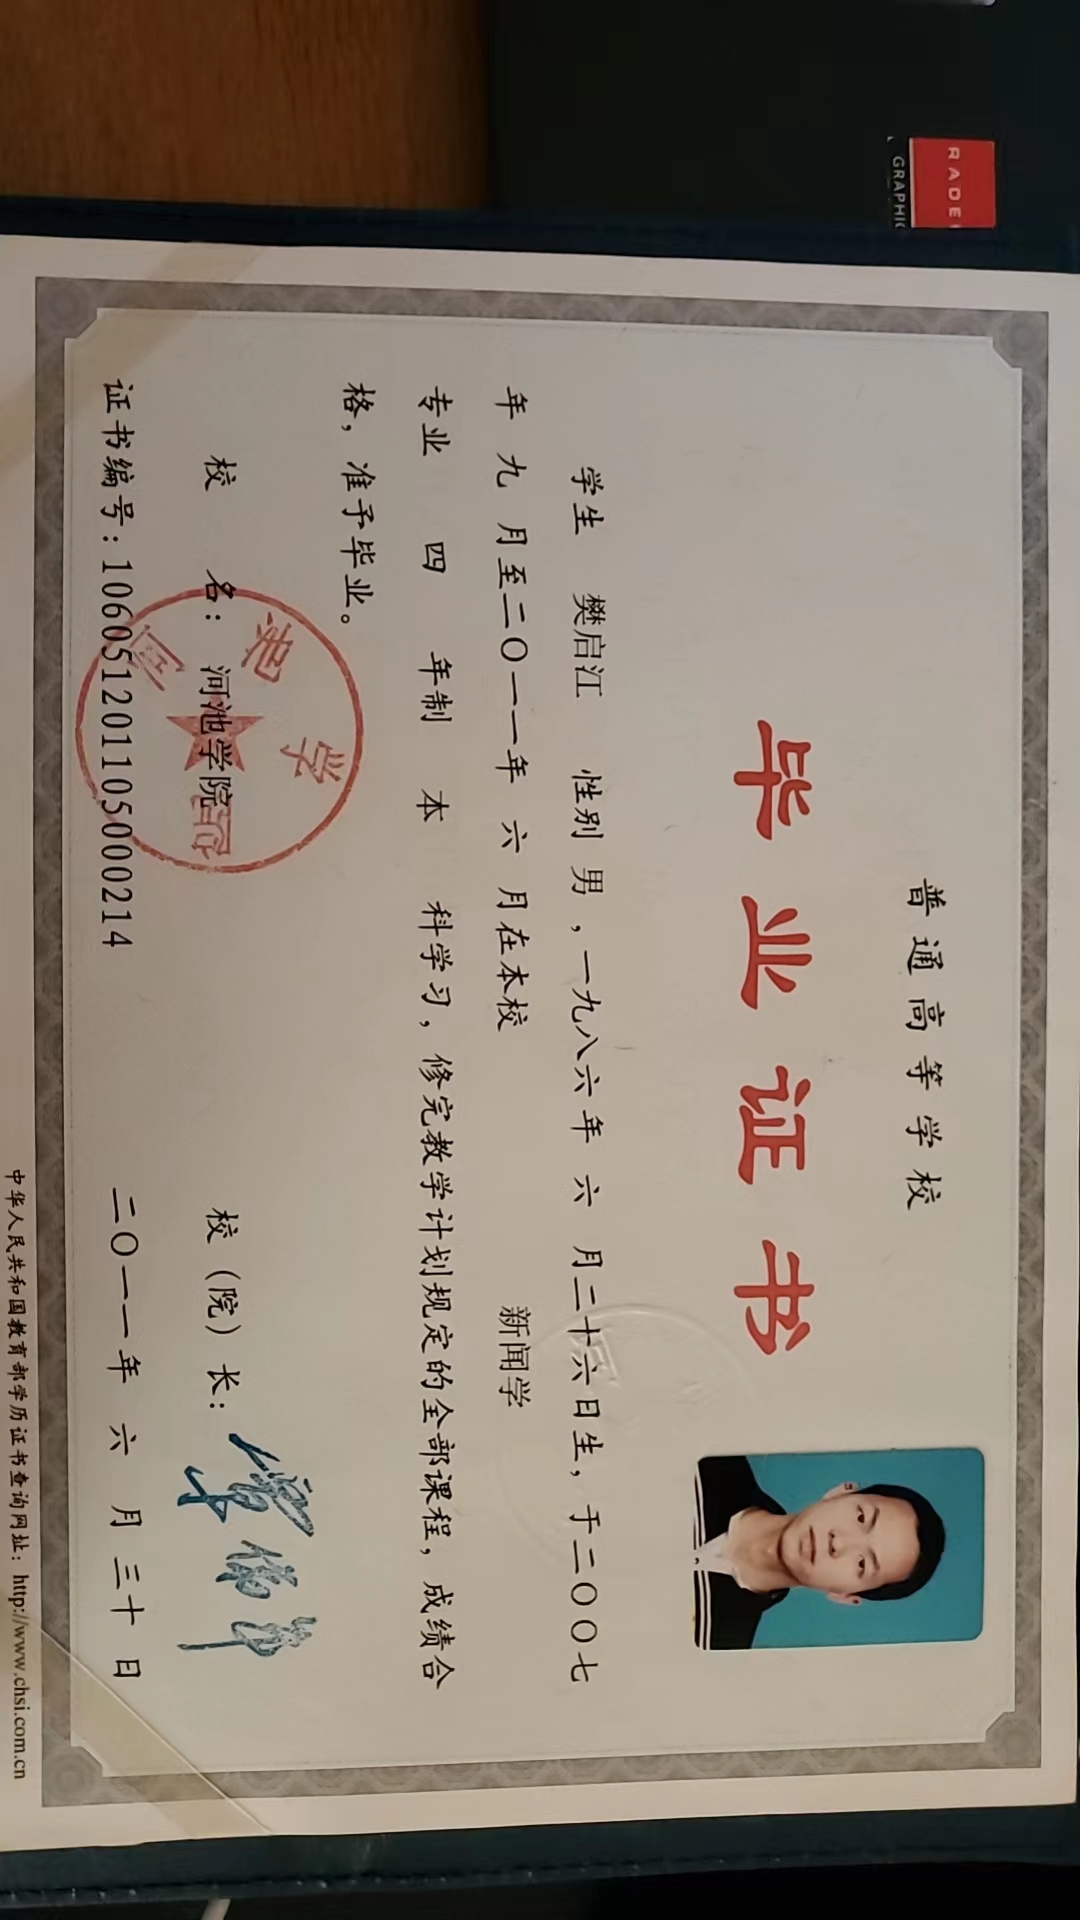 RADE
GRAPHIC
普通高等学校
毕业证书
学生 樊启江 性别 男，一九八六年 六 月二十六日生，于二〇〇七
年 九 月至二〇一一年 六 月在本校 新闻学
专业 四 年制 本 科学习，修完教学计划规定的全部课程，成绩合
格，准予毕业。
校 名：河池学院 校（院）长：
河池学院
证书编号：106051201105000214 二〇一一年 六 月 三十 日
中华人民共和国教育部学历证书查询网址：http://www.chsi.com.cn